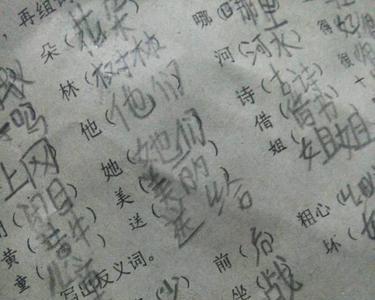 ，再组词
朵（花朵）
林（树林）
他（他们）
她（她们）
美（美丽）
送（送给）
哪（哪里）
河（河水）
诗（古诗）
借（借书）
姐（姐姐）
吗
上网
黄（黄牛）
童（儿童）
写出反义词。
少
前（后）
坐（站）
粗心（
坏（